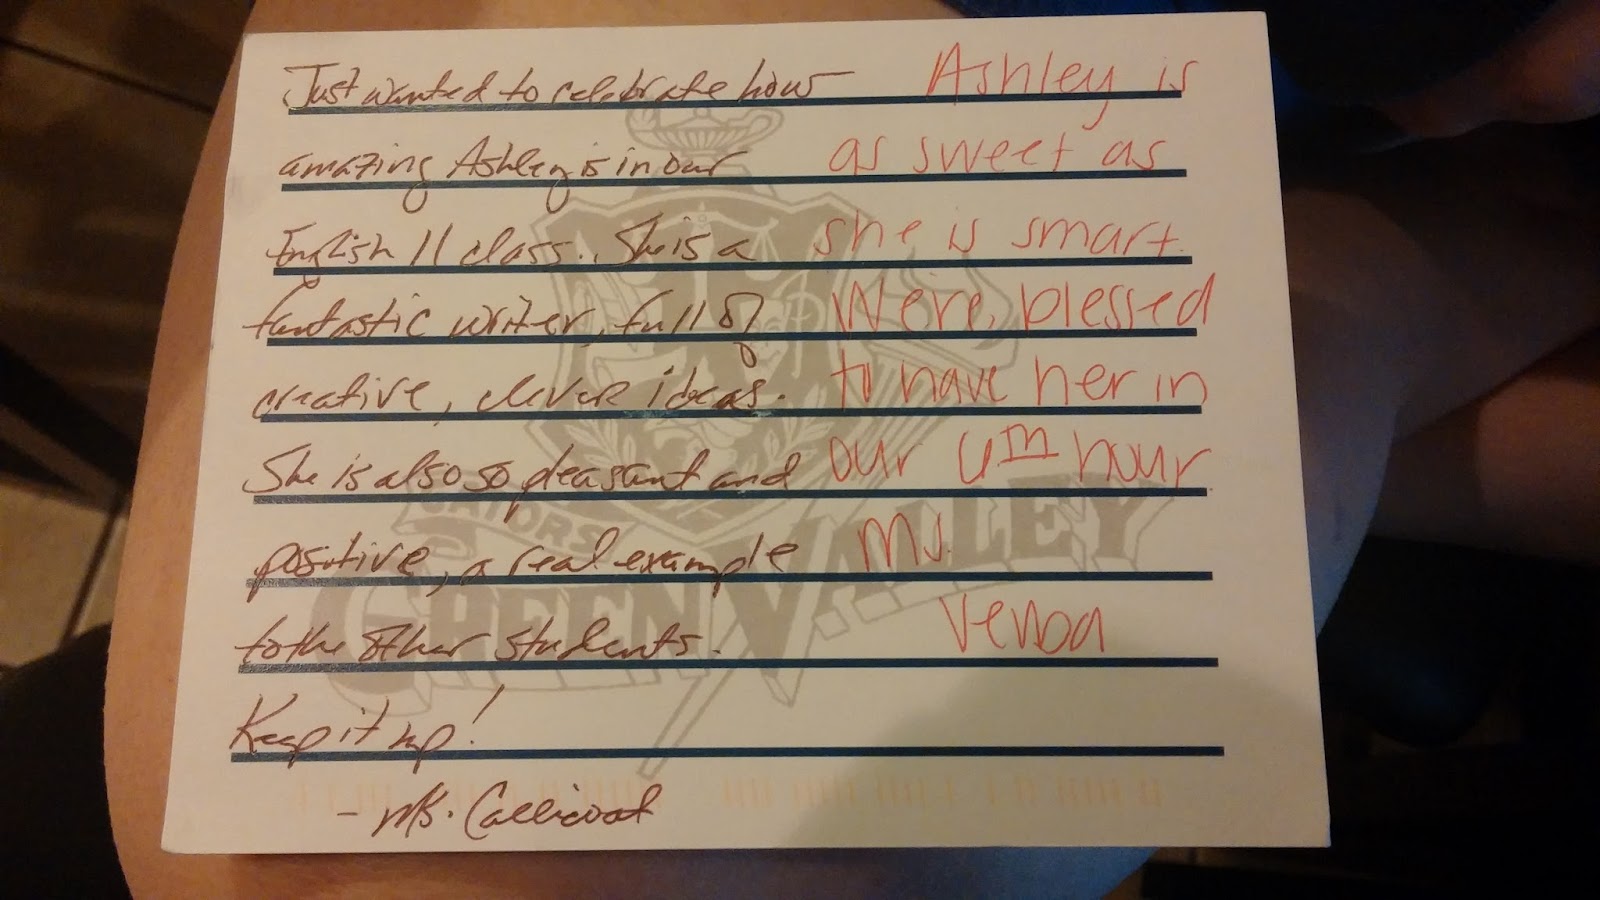 Just wanted to celebrate how
amazing Ashley is in our
English 11 class. She is a
fantastic writer, full of
creative, clever ideas.
She is also so pleasant and
positive, a real example
to the other students.
Keep it up!
- Ms. Callicoat
Ashley is
as sweet as
she is smart.
We're blessed
to have her in
our 6th hour
Ms.
Verba
GATORS
GREEN VALLEY